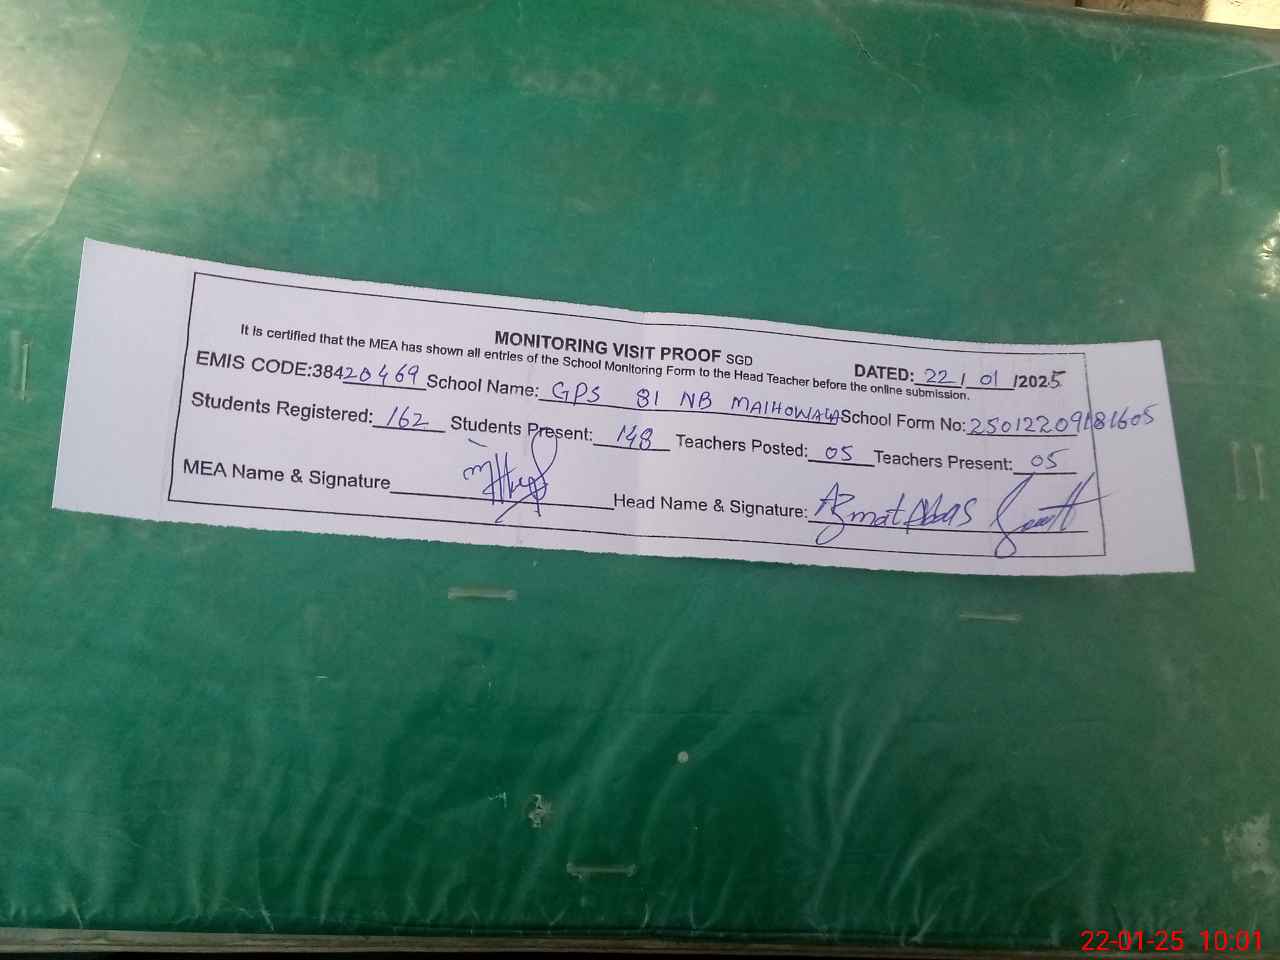 MONITORING VISIT PROOF SGD
DATED: 22 / 01 /2025
It is certified that the MEA has shown all entries of the School Monitoring Form to the Head Teacher before the online submission.
EMIS CODE:38420469 School Name: GPS 81 NB MAIHOWALA School Form No: 25012209181605
Students Registered: 162 Students Present: 148 Teachers Posted: 05 Teachers Present: 05
MEA Name & Signature Head Name & Signature: Azmat Abbas
22-01-25 10:01